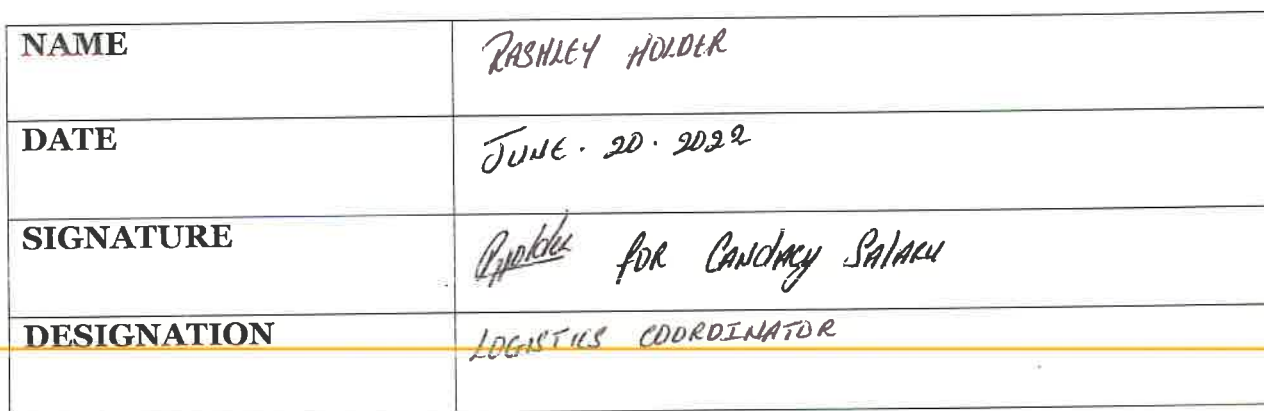 NAME RASHLEY HOLDER
DATE JUNE. 20. 2022
SIGNATURE RHolder for Candacy Salaru
DESIGNATION LOGISTICS COORDINATOR